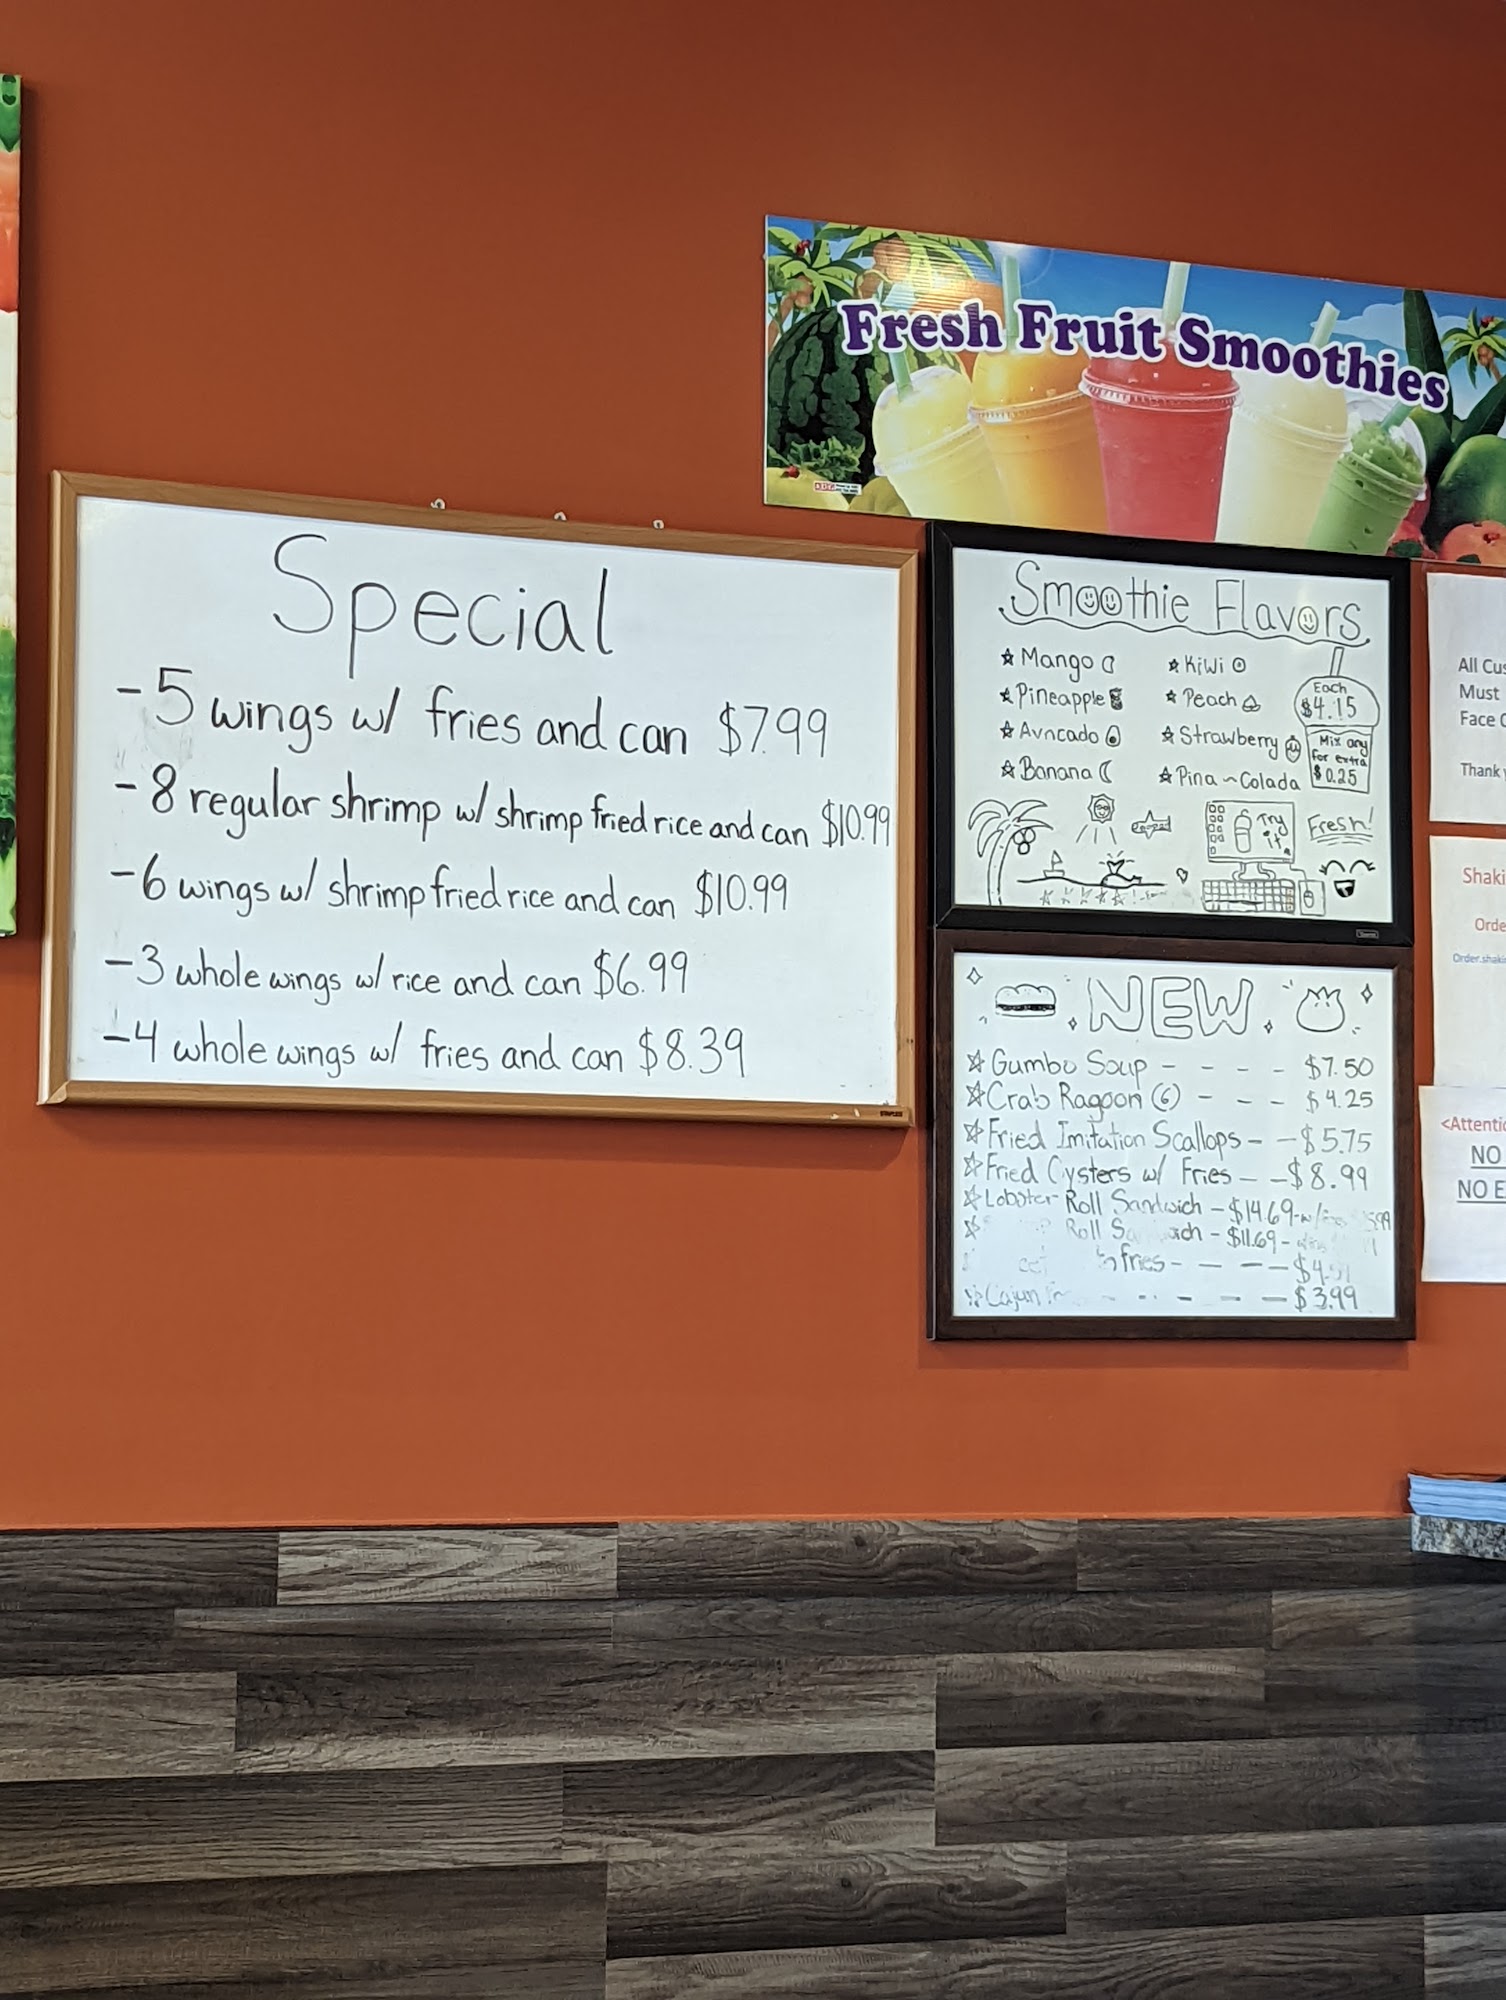 Fresh Fruit Smoothies
Special
-5 wings w/ fries and can $7.99
-8 regular shrimp w/ shrimp fried rice and can $10.99
-6 wings w/ shrimp fried rice and can $10.99
-3 whole wings w/ rice and can $6.99
-4 whole wings w/ fries and can $8.39
STAPLES
Smoothie Flavors
Mango
Pineapple
Avncado
Banana
Kiwi
Peach
Strawberry
Pina ~ Colada
Each
$4.15
Mix any
for extra
$0.25
Try
it.
Fresh!
NEW
Gumbo Soup - - - - $7.50
Crab Ragoon (6) - - - $4.25
Fried Imitation Scallops - - $5.75
Fried Oysters w/ Fries - - $8.99
Lobster Roll Sandwich - $14.69 - w/
Roll Sandwich - $11.69 -
fries - - - - $4.
Cajun - - - - - $3.99
All Cus
Must
Face C
Thank y
Shaki
Orde
Order.shaki
<Attentio
NO
NO E